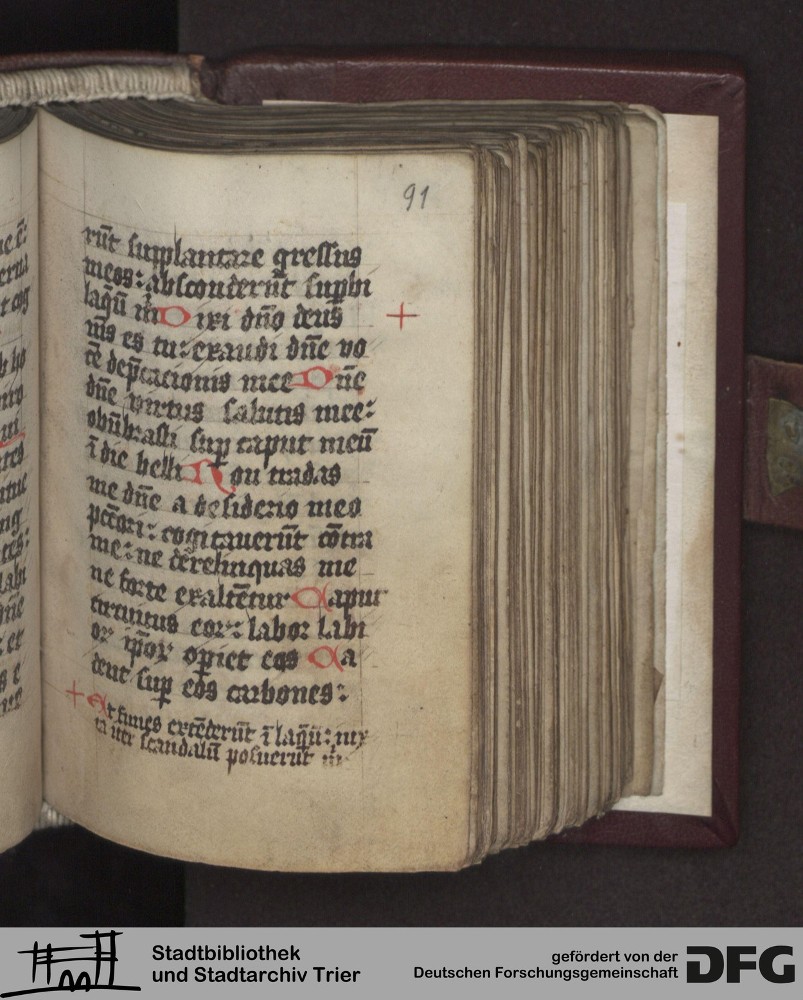 91
rūt supplantare gressus
meos: absconderūt supbi
laq̄u m̄ Dixi dn̄o deus
m̄s es tu: exaudi dn̄e vo
cē dep̄cacionis mee Dn̄e
dn̄e virtus salutis mee:
obūbrasti sup caput meū
ī die belli Non tradas
me dn̄e a desiderio meo
pctōri: cogitauerūt cōtra
me: ne derelinquas me
ne forte exaltētur Caput
circuitus eoꝝ: labor labi
oꝝ ipōꝝ opiet eos Ca
dent sup eos carbones:
+ Et funes extēderūt ī laq̄u: iux
ta iter scandalū posuerūt m̄
Stadtbibliothek
und Stadtarchiv Trier
gefördert von der
Deutschen Forschungsgemeinschaft
DFG